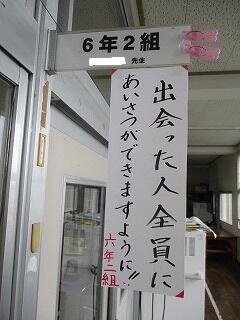 6年2組
先生
出会った人全員に
あいさつができますように!!
六年二組